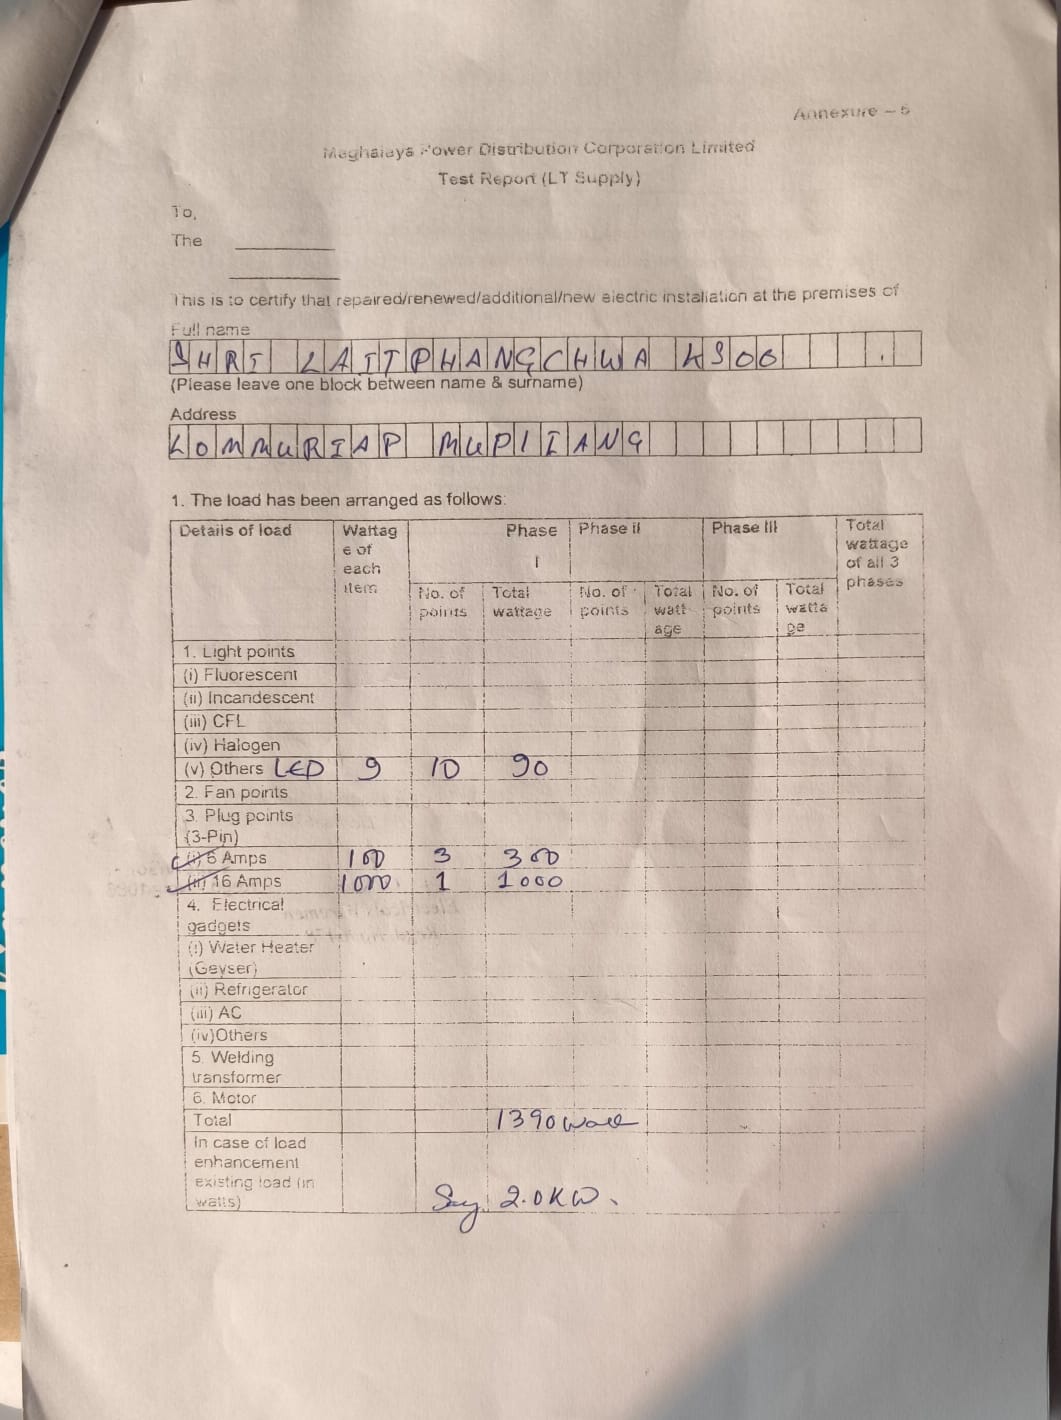 Annexure – 5
Meghalaya Power Distribution Corporation Limited
Test Report (LT Supply)
To,
The
This is to certify that repaired/renewed/additional/new electric installation at the premises of
Full name
SHRI LAITPHANGCHWA KSOO
(Please leave one block between name & surname)
Address
LOMMURIAP MUPLIANG
1. The load has been arranged as follows:
Details of load Wattage of each item Phase I Phase II Phase III Total wattage of all 3 phases
No. of points Total wattage No. of points Total wattage No. of points Total wattage
1. Light points
(i) Fluorescent
(ii) Incandescent
(iii) CFL
(iv) Halogen
(v) Others LED 9 10 90
2. Fan points
3. Plug points
(3-Pin)
(i) 6 Amps 100 3 300
(ii) 16 Amps 1000 1 1000
4. Electrical
gadgets
(i) Water Heater
(Geyser)
(ii) Refrigerator
(iii) AC
(iv)Others
5. Welding
transformer
6. Motor
Total 1390
In case of load
enhancement
existing load (in
watts) Say 2.0KW.